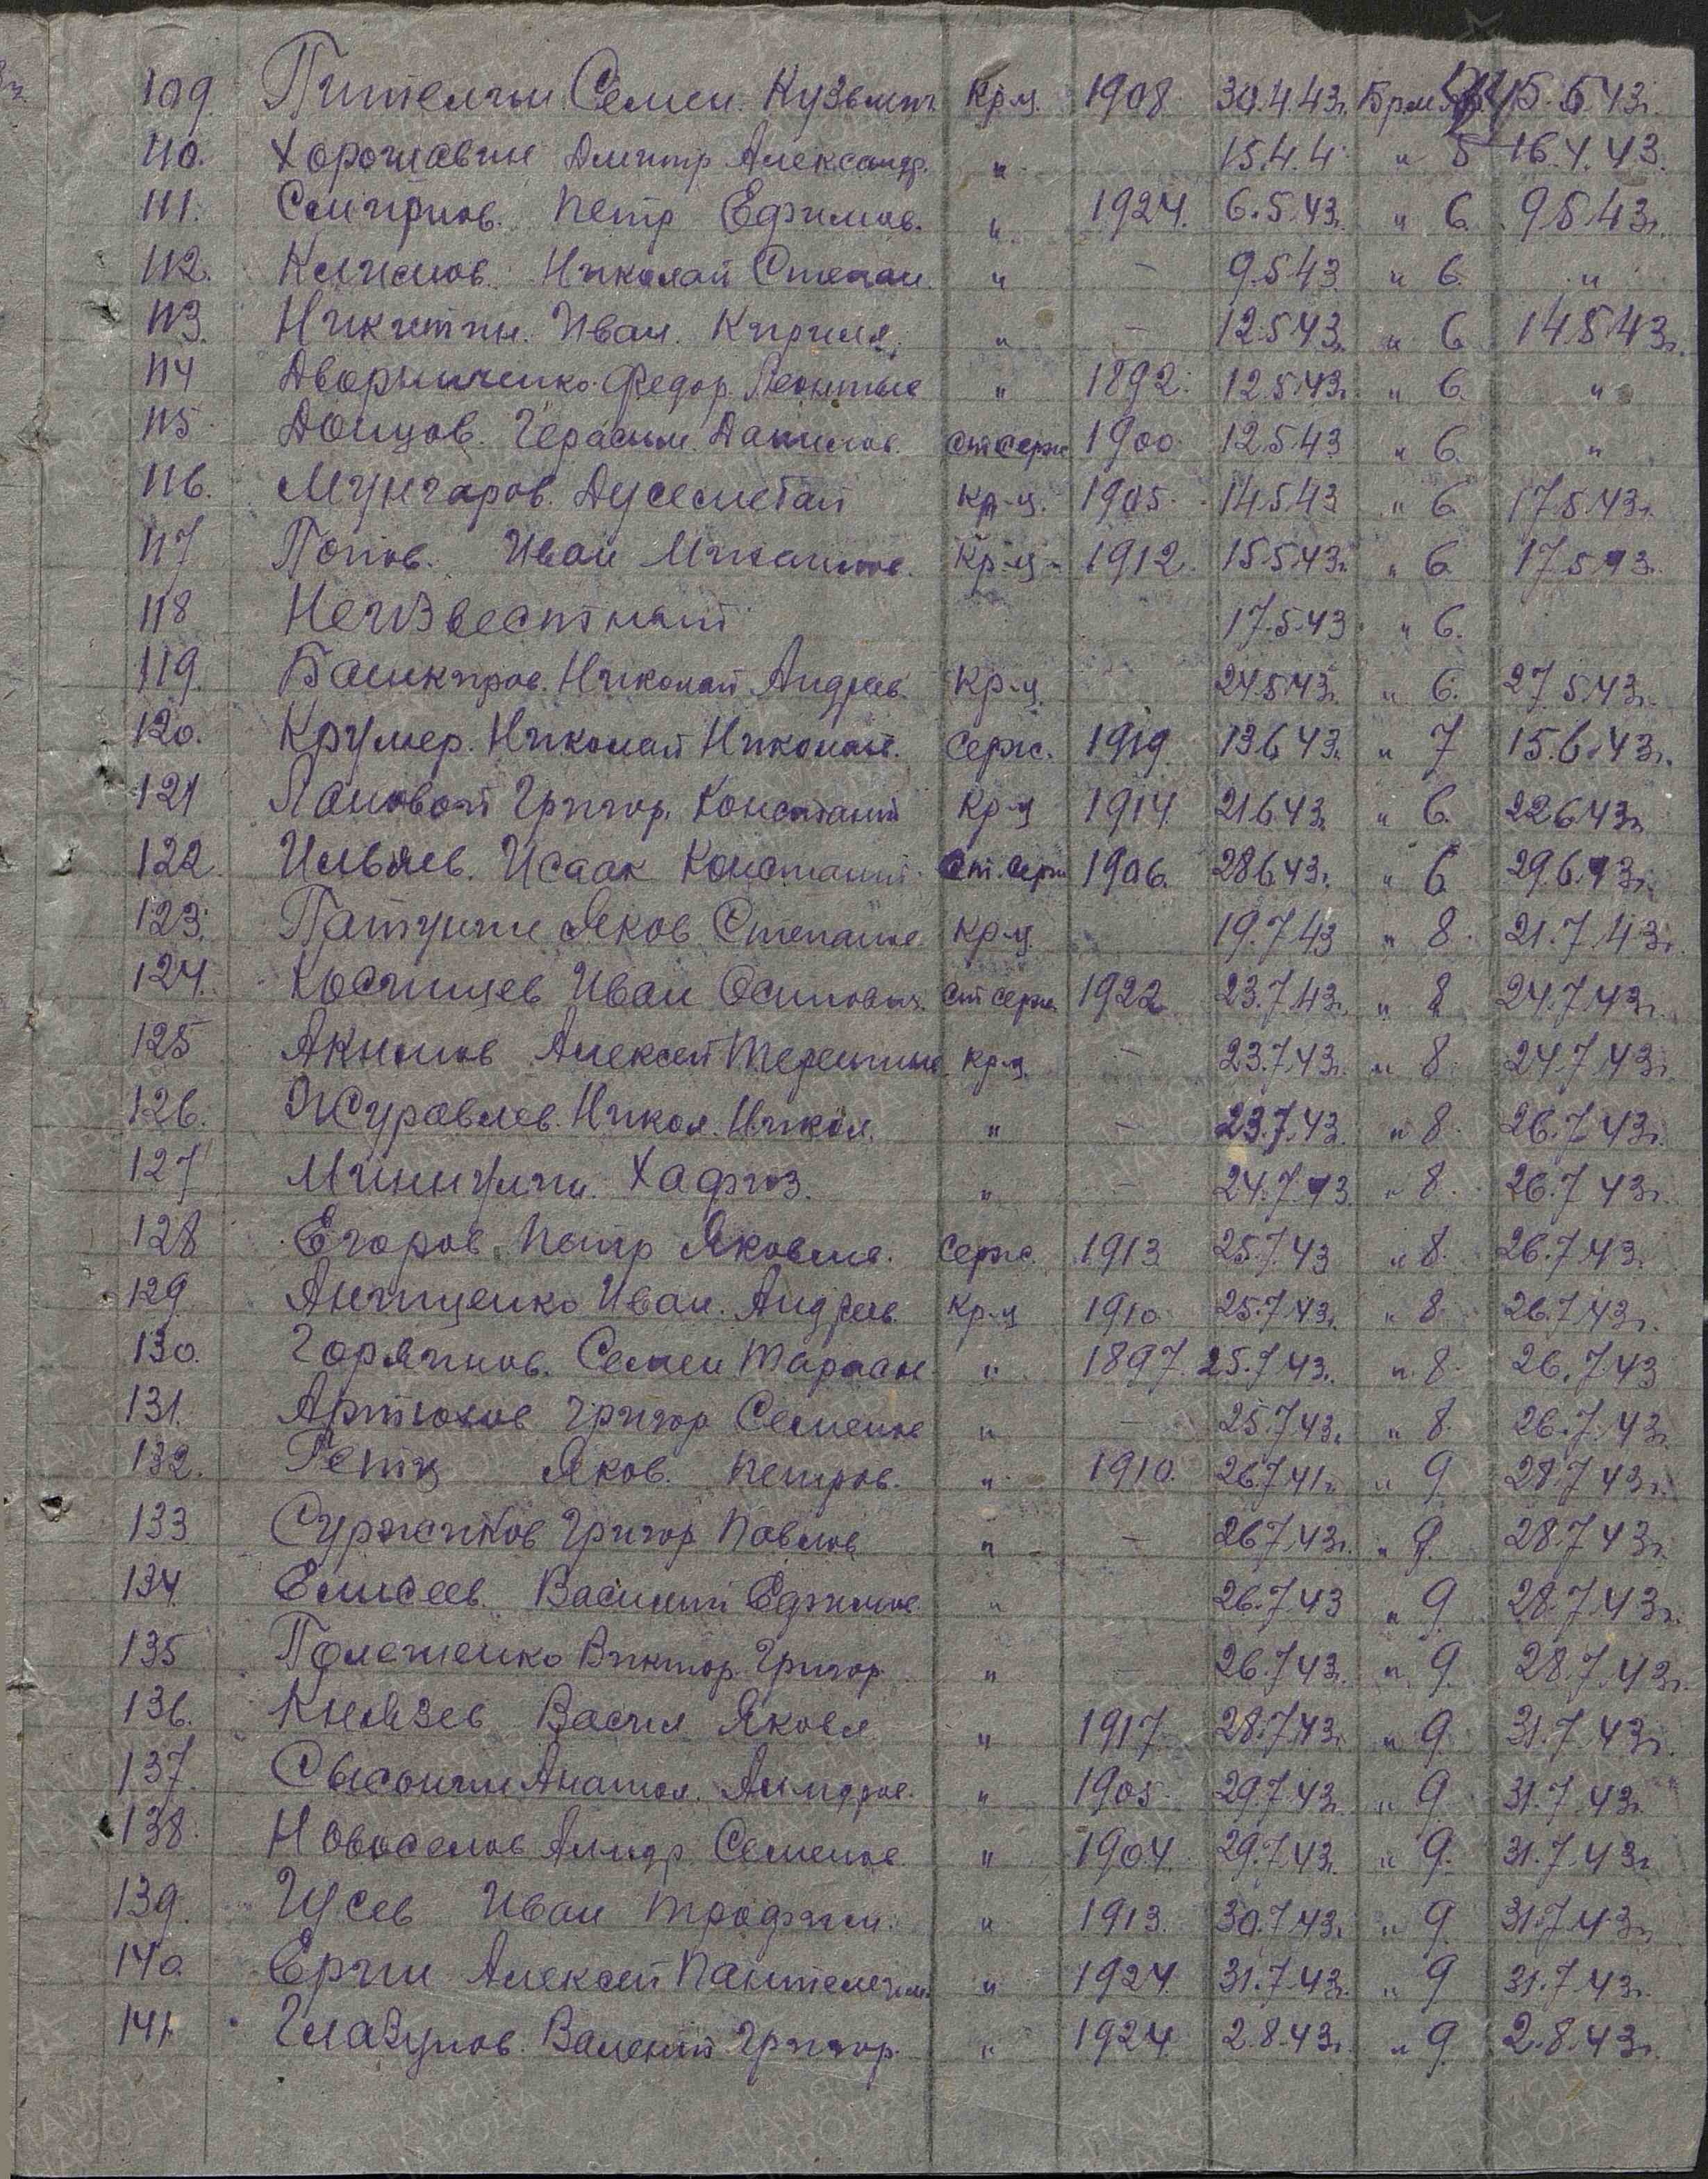 109. Пителин Семен. Кузьмич Кр-ц. 1908. 30.4.43г. Брм. 5.5.43г.
110. Хорошавин Дмитр Александр. " 15.4.4 " 5 16.4.43.
111. Смирнов. Петр Ефимов. " 1924. 6.5.43г. " 6. 9.5.43г.
112. Климов. Николай Степан. " — 9.5.43 " 6. "
113. Никитин. Иван. Кирил. " — 12.5.43. " 6 14.5.43г.
114 Дворниченко. Федор. Леонтье " 1892. 12.5.43г. " 6. "
115. Донцов. Герасим. Данилов. ст серж 1900 12.5.43 " 6. "
116. Мунгаров. Дусеметай Кр-ц. 1905. 14.5.43 " 6 17.5.43г.
117 Попов. Иван Михайлов. Кр-ц 1912. 15.5.43г. " 6. 17.5.43.
118 Неизвестный 17.5.43 " 6.
119. Башкиров. Николай Андреев. Кр-ц. 24.5.43г. " 6. 27.5.43г.
120. Крумер. Николай Николае. Серж. 1919. 13.6.43. " 7 15.6.43г.
121 Лановой Григор. Констант Кр-ц 1914. 21.6.43. " 6. 22.6.43г
122. Ильяев. Исаак Констант. Ст. серж 1906. 28.6.43. " 6 29.6.43г.
123. Патунин Яков Степанов Кр-ц. 19.7.43 " 8. 21.7.43г.
124. Иван Осипович. Ст серж. 1922 23.7.43г. " 8 24.7.43г.
125 Акимов Алексей Терентьев Кр-ц. — 23.7.43г. " 8. 24.7.43г.
126. Журавлев. Никол. Никол. " — 23.7.43. " 8. 26.7.43г.
127 Минигулин. Хафиз. " — 24.7.43. " 8. 26.7.43г.
128 Егоров Петр Яковле. Серж. 1913 25.7.43 " 8. 26.7.43г.
129 Анищенко Иван. Андреев. Кр-ц 1910 25.7.43г. " 8. 26.7.43г.
130. Горяинов. Семен " 1897. 25.7.43. " 8. 26.7.43
131. Артюхов Григор Семенов " — 25.7.43. " 8. 26.7.43г.
132. Яков. Петров. " 1910. 26.7.41г. " 9. 28.7.43г.
133 Суржиков Григор Павлов " — 26.7.43г. " 9. 28.7.43г.
134. Елисеев. Василий Ефимов " 26.7.43 " 9 28.7.43г.
135 Полещенко Виктор. Григор. " — 26.7.43. " 9. 28.7.43г.
136. Князев Васил Яковл. " 1917 28.7.43г. " 9. 31.7.43г.
137. Сысонин Анатол. " 1905. 29.7.43г. " 9 31.7.43г.
138. Новоселов Семенов. " 1904. 29.7.43г. " 9. 31.7.43г
139. Гусев Иван Трофим. " 1913. 30.7.43г. " 9. 31.7.43г
140 Ерин Алексей Пантелеим. " 1924. 31.7.43г. " 9 31.7.43г.
141. Глазунов. Валент Григор. " 1924 2.8.43г. " 9. 2.8.43г.